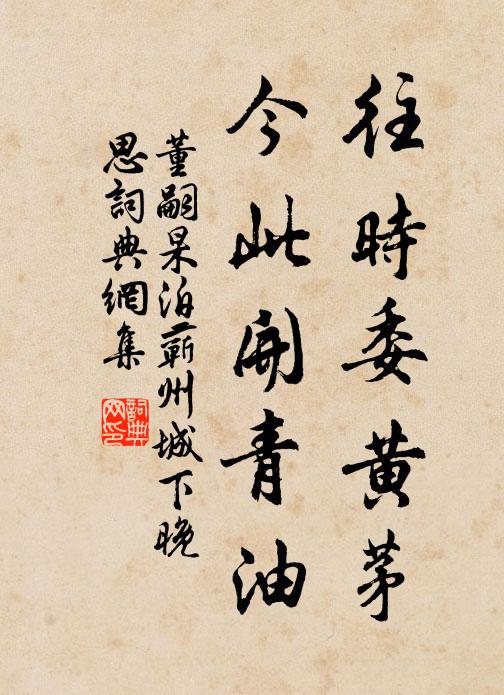 往時委黄茅
今此開青油
董嗣杲泊蘄州城下晚
思詞典網集
詞典
网印